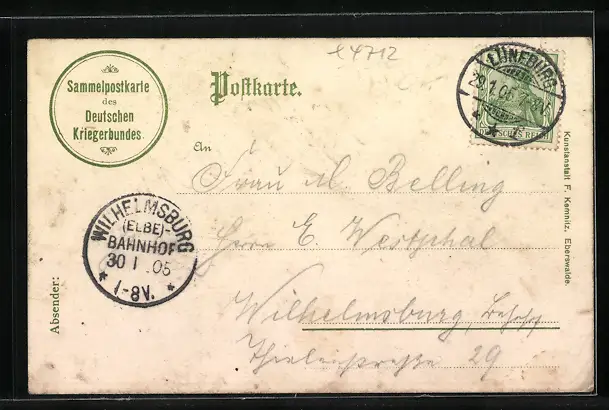 x4712
Sammelpostkarte
des
Deutschen
Kriegerbundes.
Postkarte.
LÜNEBURG
29.1.05
DEUTSCHES REICH
An
Frau M. Belling
Herrn E. Westphal
Wilhelmsburg, Bahnhof
Thielenstraße 29
WILHELMSBURG
(ELBE)-
BAHNHOF
30 1 .05
* 1-8V. *
Absender:
Kunstanstalt F. Kemnitz, Eberswalde.